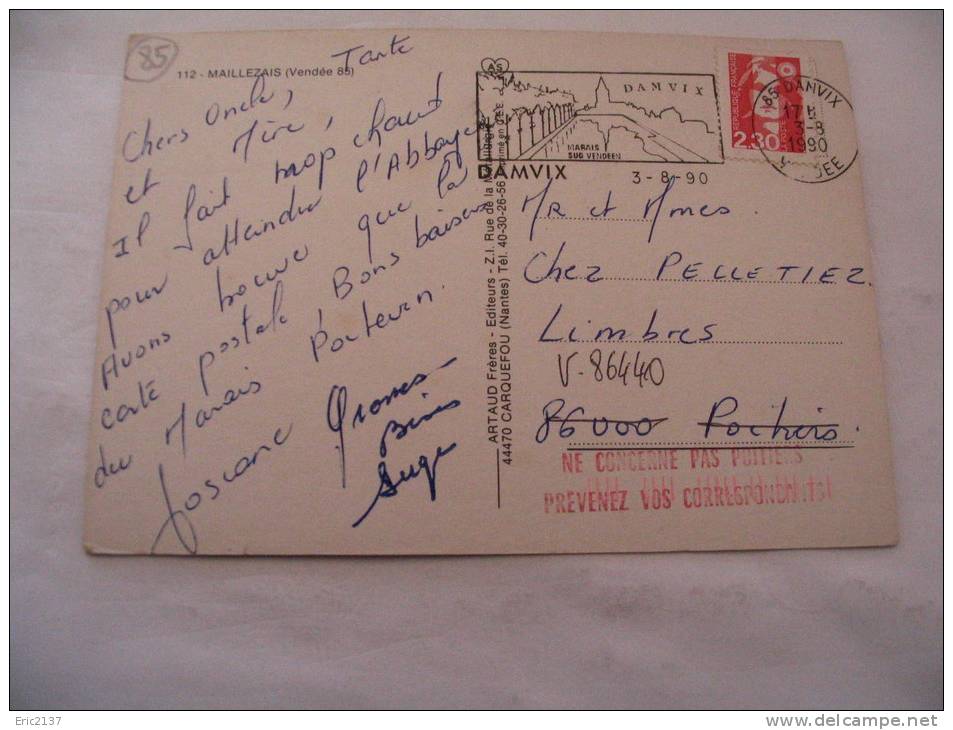 85
112 - MAILLEZAIS (Vendée 85)
Chers Oncle, Tante
et Mère,
Il fait trop chaud
pour atteindre l'Abbaye
Avons trouvé que la
carte postale, Bons baisers
du Marais Poitevin.
Josiane Grosses
Bises
Serge
ARTAUD Frères - Editeurs - Z.I. Rue de la Métallurgie
44470 CARQUEFOU (Nantes) Tél. 40-30-26-56 Imprimé en C.E.E.
AS
DAMVIX
MARAIS
SUD VENDEEN
DAMVIX
3-8-90
85 DAMVIX
17 H
3-8
1990
VENDEE
REPUBLIQUE FRANÇAISE
2,30
Mr et Mmes.
Chez PELLETIEZ
Limbres
V-86440
86000 Poitiers.
NE CONCERNE PAS POITIERS
PREVENEZ VOS CORRESPONDANTS!
Eric2137
delcampe.net